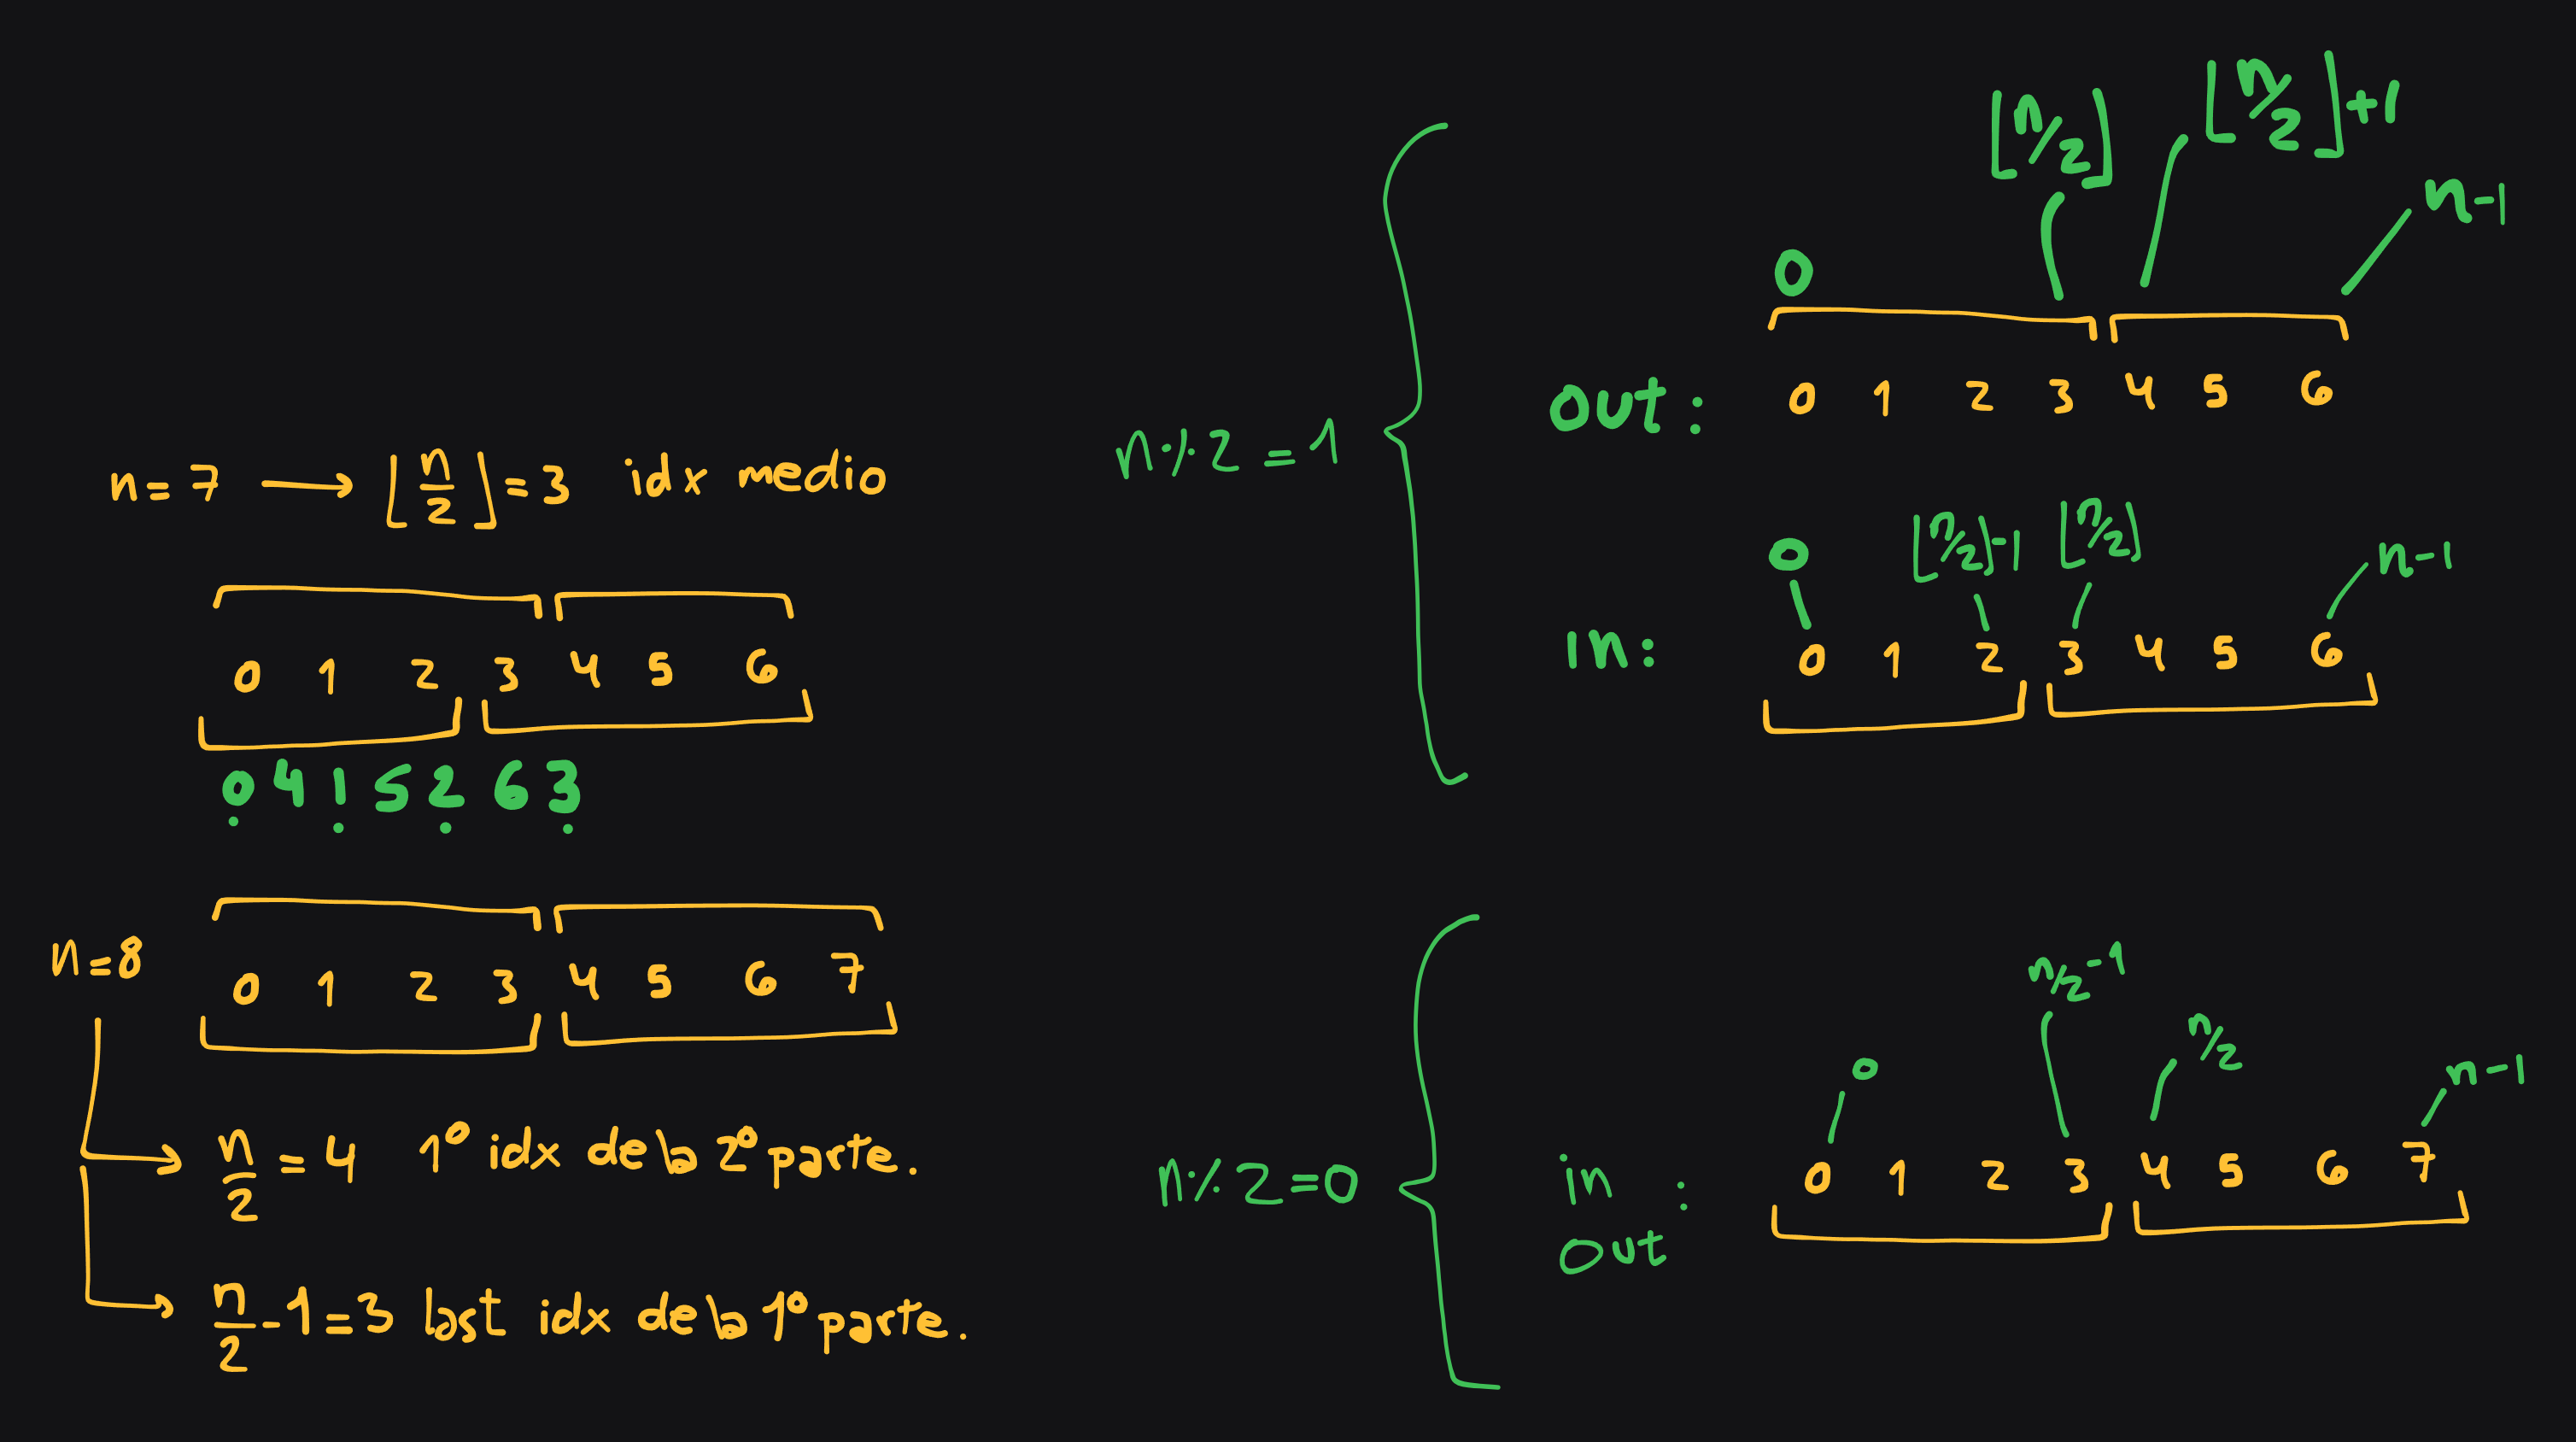 n=7 → ⌊n/2⌋=3 idx medio
0 1 2 3 4 5 6
0 4 1 5 2 6 3
n=8
0 1 2 3 4 5 6 7
n/2 = 4 1º idx de la 2º parte.
n/2 -1=3 last idx de la 1º parte.
n%2=1
0 ⌊n/2⌋ ⌊n/2⌋+1 n-1
out: 0 1 2 3 4 5 6
0 ⌊n/2⌋-1 ⌊n/2⌋ n-1
in: 0 1 2 3 4 5 6
n%2=0
0 n/2-1 n/2 n-1
in : 0 1 2 3 4 5 6 7
out